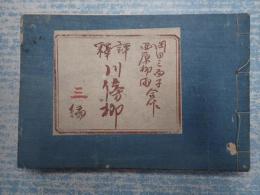 岡田三面子
西原柳雨 合作
評釈 川傍柳
三编